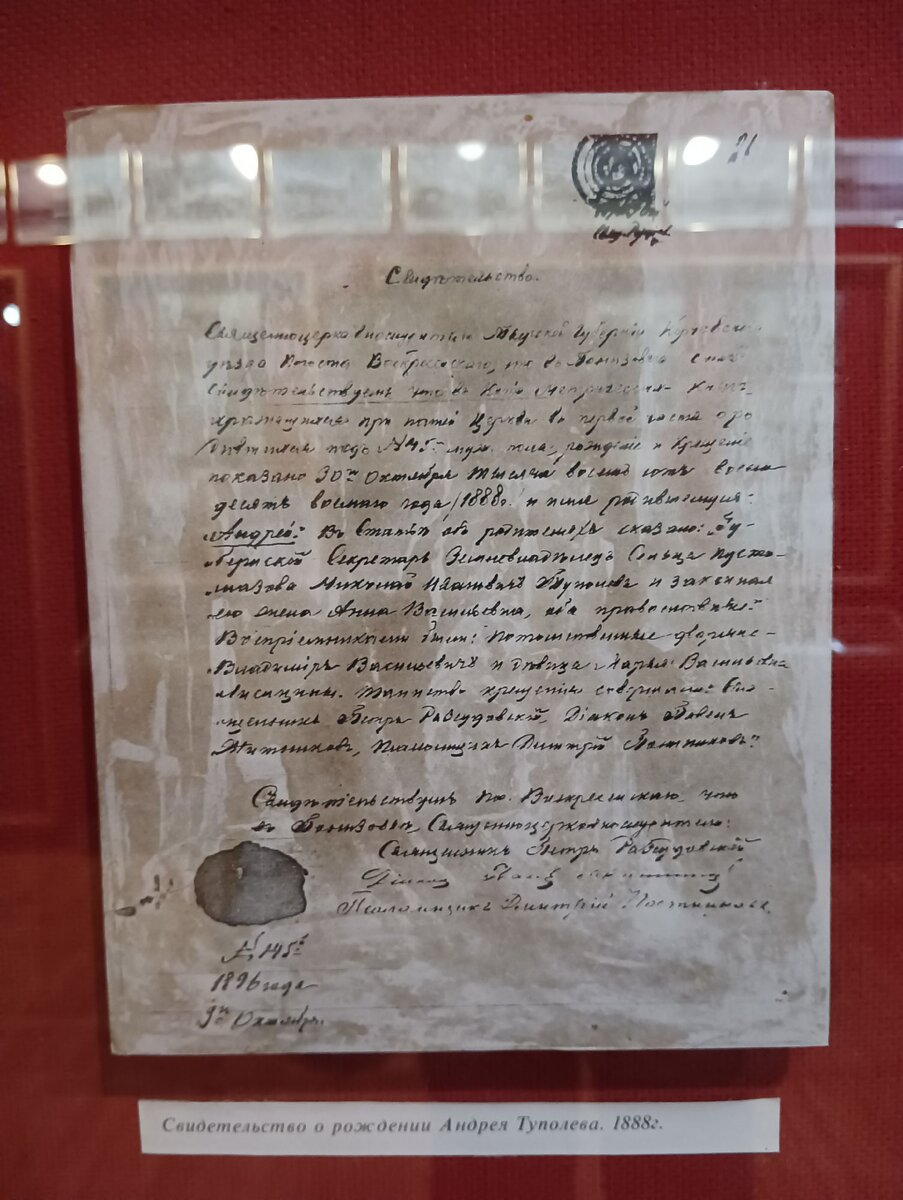 21
Свидѣтельство.
Священноцерковнослужители Тверской Губерніи Корчевскаго
уѣзда Погоста Воскресенскаго, что въ Понизовьѣ симъ
свидѣтельствуемъ что въ метрической книгѣ
хранящихся при нашей Церкви въ первой части о ро
дившихся подъ № 45 муж. пола, рожденіе и крещеніе
показано 30го Октября тысяча восемь сотъ восемь
десятъ восьмаго года /1888г./ и имя родившемуся:
"Андрей". Въ статьѣ объ родителяхъ сказано: "Гу-
бернскій Секретарь Землевладѣлецъ Сельца Пусто-
мазова Николай Ивановичъ Туполевъ и законная
его жена Анна Васильевна, оба православные"
Воспріемниками были: потомственные дворяне-
Владиміръ Васильевичъ и дѣвица Марья Васильевна
Лисицины. Таинство крещенія совершали: Свя-
щенникъ Петръ Діаконъ Павелъ
Псаломщикъ Димитрій
Свидѣтельствуемъ по. Воскресенскаго, что
въ Понизовьѣ, Священноцерковнослужители:
Священникъ Петръ
Діаконъ Павелъ
Псаломщикъ Дмитрій
№ 145
1896 года
9го Октября.
Свидетельство о рождении Андрея Туполева. 1888г.